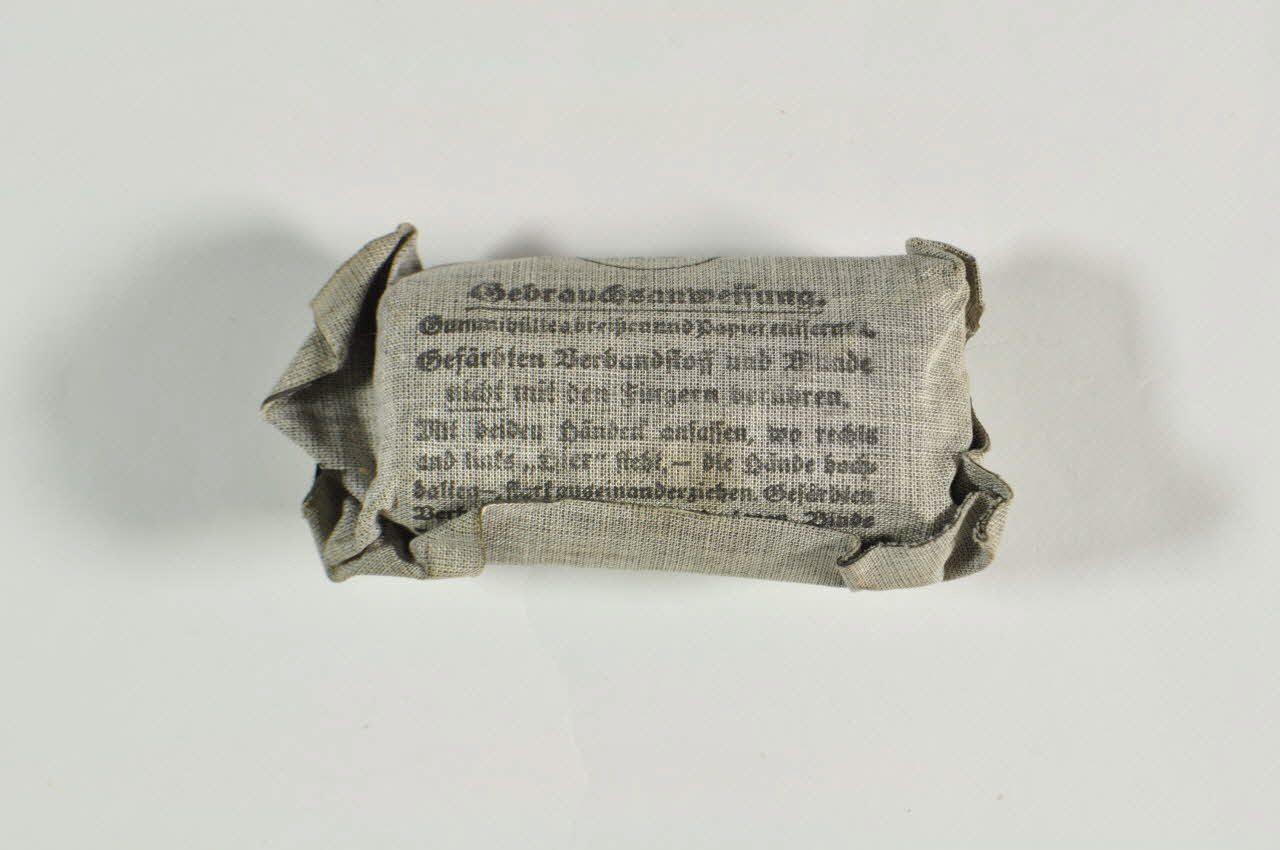 Gebrauchsanweisung.
Gummihülle abreißen und Papier entfernen.
Gefärbten Verbandstoff und Wunde
nicht mit den Fingern berühren.
Mit beiden Händen anfassen, wo rechts
und links „Hier“ steht, — die Hände hoch-
halten —, stark auseinanderziehen. Gefärbten
Binde